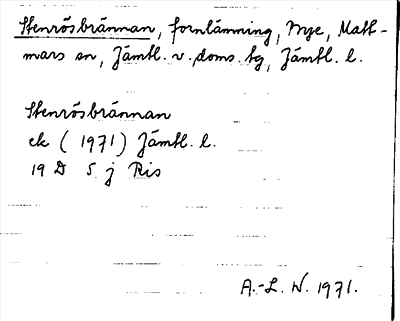 Stenrösbrännan, fornlämning, Mye, Matt-
mars sn, Jämtl. v. doms. tg, Jämtl. l.
Stenrösbrännan
ek ( 1971) Jämtl. l.
19 D 5 j Ris
A.-L. N. 1971.